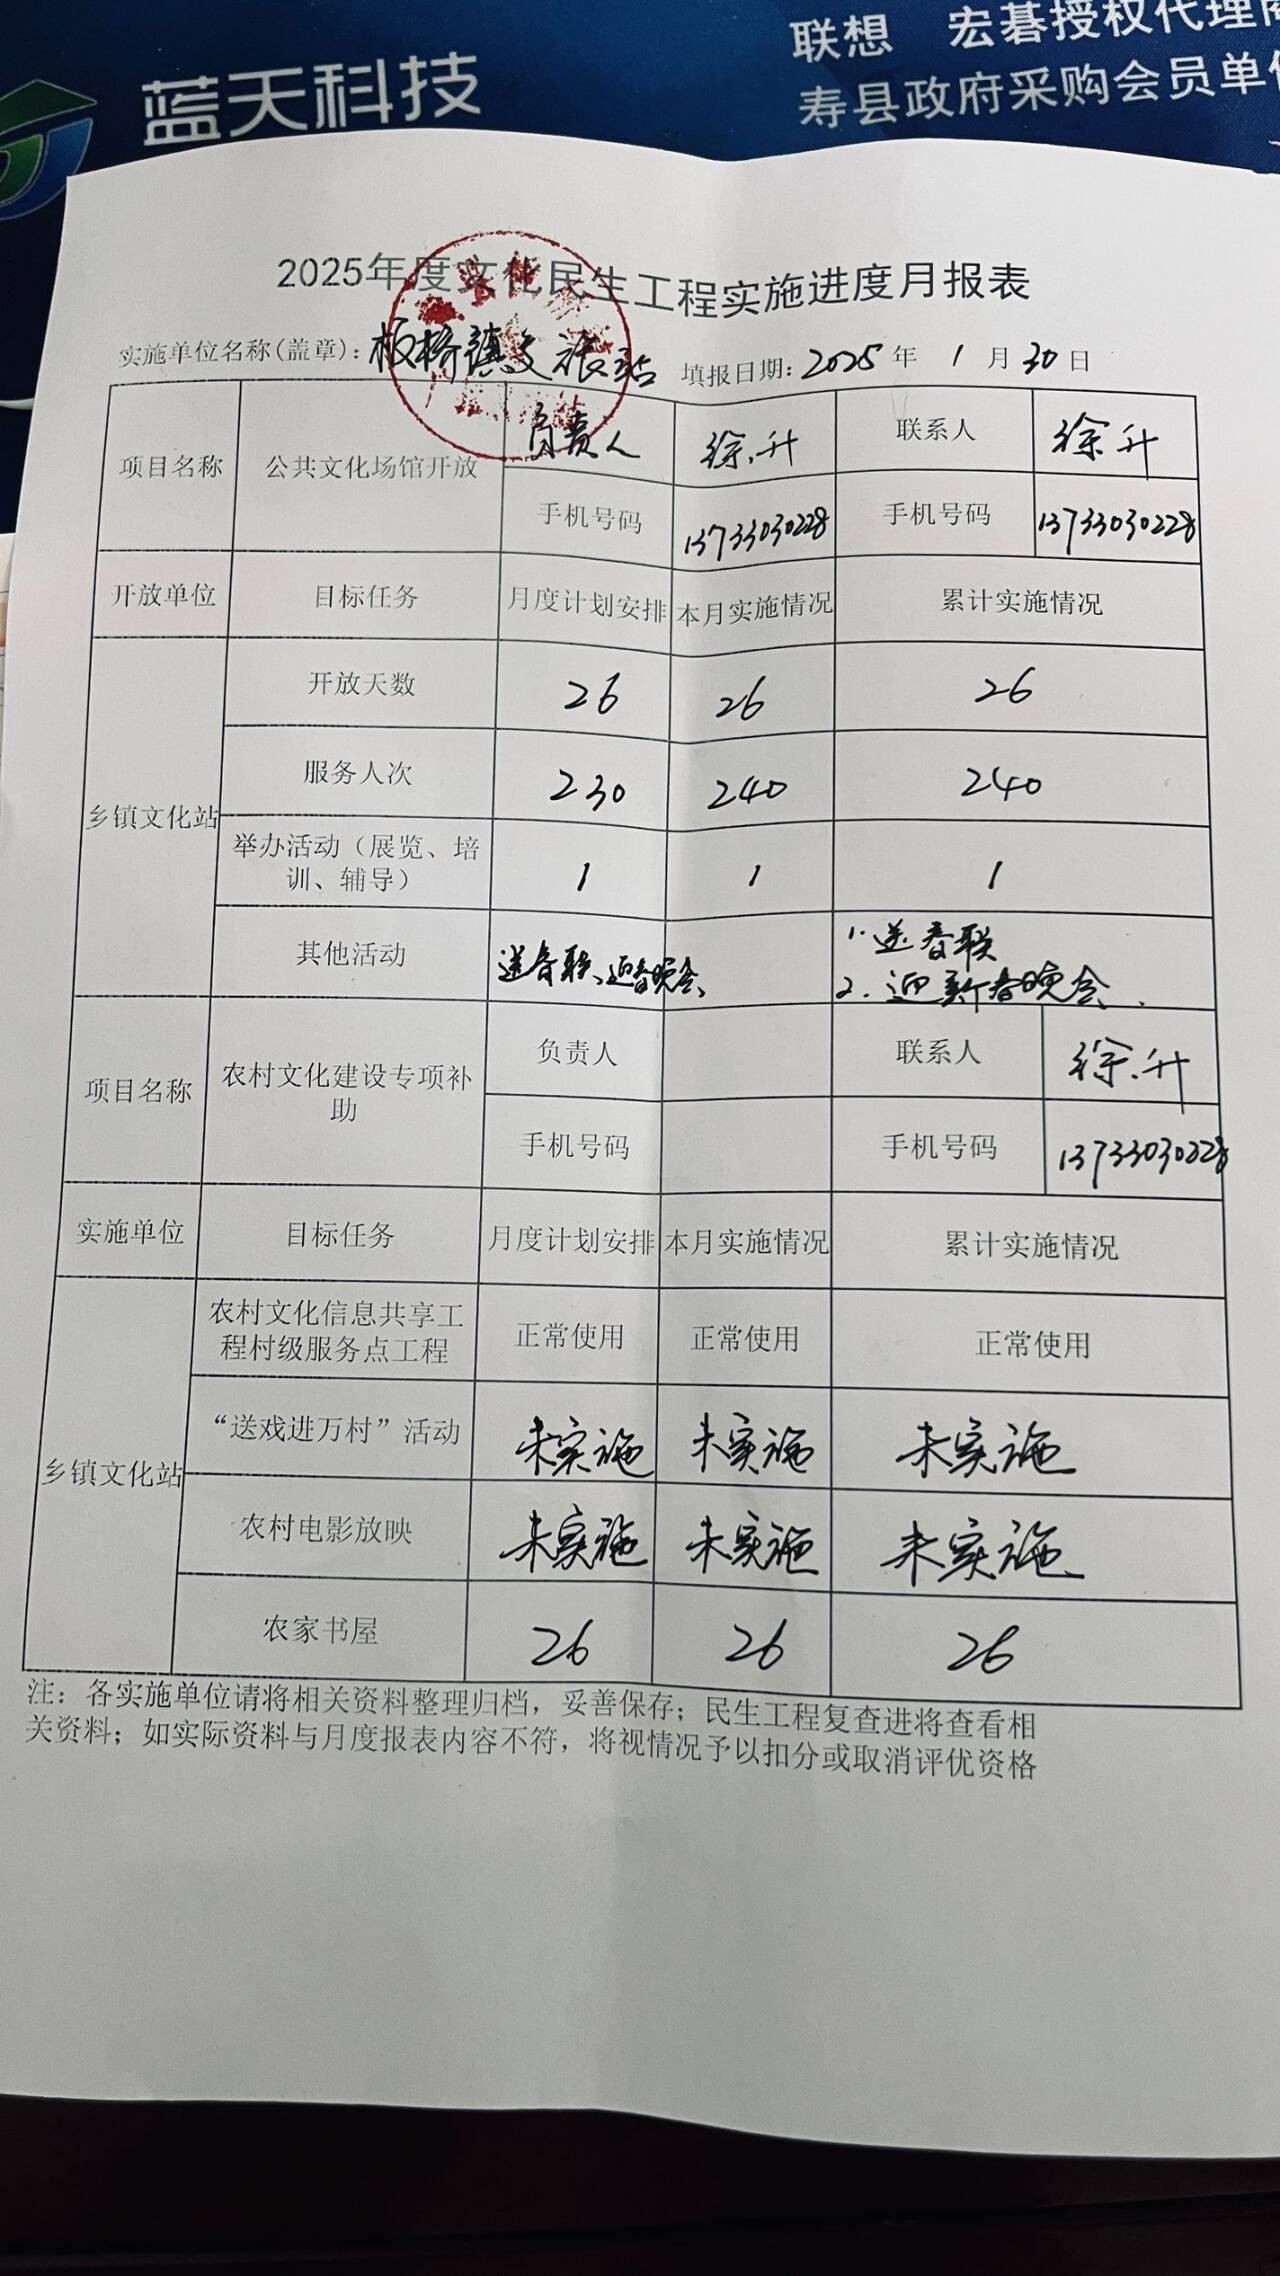 蓝天科技
联想 宏碁授权代理商
寿县政府采购会员单位
2025年度文化民生工程实施进度月报表
实施单位名称(盖章): 板桥镇文旅站 填报日期: 2025 年 1 月 30 日
项目名称 公共文化场馆开放 负责人 徐升 联系人 徐升
手机号码 13733030228 手机号码 13733030228
开放单位 目标任务 月度计划安排 本月实施情况 累计实施情况
乡镇文化站
开放天数 26 26 26
服务人次 230 240 240
举办活动（展览、培
训、辅导） 1 1 1
其他活动 送春联、迎春晚会、 1.送春联
2.迎新春晚会.
项目名称 农村文化建设专项补
助 负责人 联系人 徐升
手机号码 手机号码 13733030228
实施单位 目标任务 月度计划安排 本月实施情况 累计实施情况
乡镇文化站
农村文化信息共享工
程村级服务点工程 正常使用 正常使用 正常使用
“送戏进万村”活动 未实施 未实施 未实施
农村电影放映 未实施 未实施 未实施
农家书屋 26 26 26
注：各实施单位请将相关资料整理归档，妥善保存；民生工程复查进将查看相
关资料；如实际资料与月度报表内容不符，将视情况予以扣分或取消评优资格